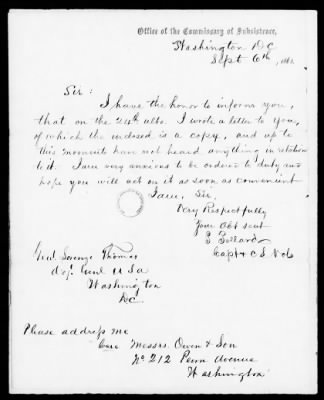 Office of the Commissary of Subsistence,
Washington D.C.
Sept 6th, 186
Sir:
I have the honor to inform you,
that on the 24th ulto. I wrote a letter to you,
of which the inclosed is a copy, and up to
this moment have not heard anything in relation
to it. I am very anxious to be ordered to duty and
hope you will act on it as soon as convenient
I am, Sir,
Very Respectfully
Your Obt servt
Capt & C.S. Vols
Genl Lorenzo Thomas
Adjt Genl U S A
Washington
D.C.
Please address me
Care Messrs. Owen & Son
No 212 Penn Avenue
Washington